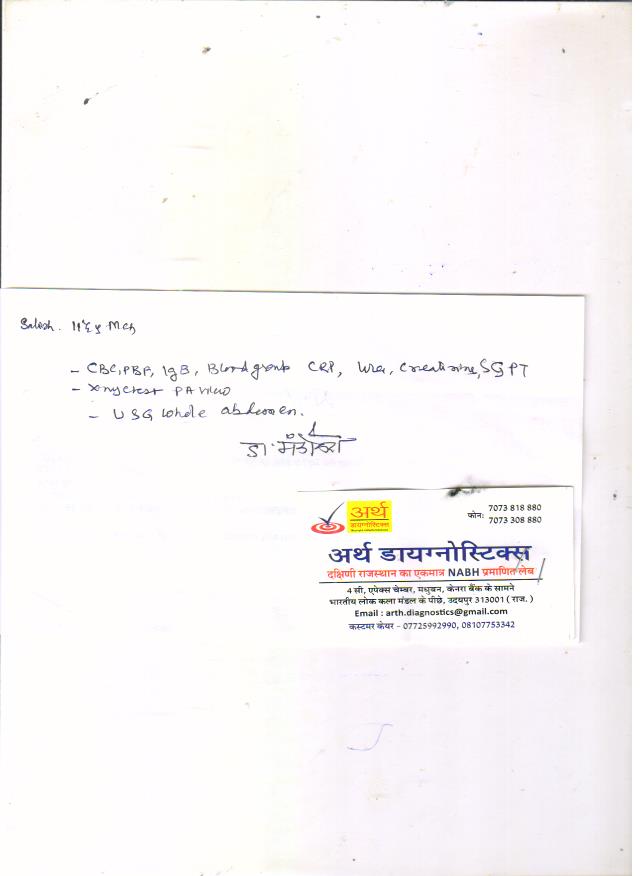 Satish. 11 Yrs Mch
- CBC, PBF, IgE, Blood group CRP, Urea, Creatinine, SGPT
- Xray chest PA view
- USG whole abdomen.
डा.
अर्थ
डायग्नोस्टिक्स
फोन: 7073 818 880
7073 308 880
अर्थ डायग्नोस्टिक्स
दक्षिणी राजस्थान का एकमात्र NABH प्रमाणित लेब
4 सी, एपेक्स चेम्बर, मधुबन, केनरा बैंक के सामने
भारतीय लोक कला मंडल के पीछे, उदयपुर 313001 ( राज. )
Email : arth.diagnostics@gmail.com
कस्टमर केयर - 07725992990, 08107753342